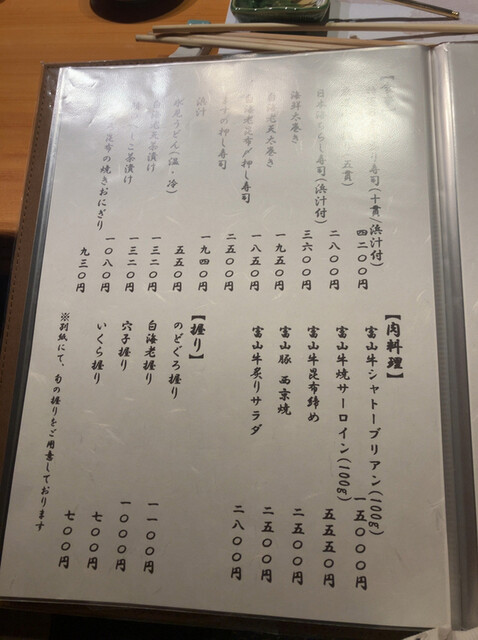 り寿司(十貫/浜汁付) 四二〇〇円
五貫) 二八〇〇円
日本海ちらし寿司(浜汁付) 三六〇〇円
海鮮太巻き 一九五〇円
白海老天太巻き 一八五〇円
白海老昆布〆押し寿司 二五〇〇円
の押し寿司 一九四〇円
浜汁 五五〇円
氷見うどん(温・冷) 一三二〇円
白海老天茶漬け 一三二〇円
しこ茶漬け 一〇八〇円
昆布の焼きおにぎり 九三〇円
【肉料理】
富山牛シャトーブリアン(100g) 一五〇〇〇円
富山牛焼サーロイン(100g) 五五五〇円
富山牛昆布締め 二五〇〇円
富山豚 西京焼 二五〇〇円
富山牛炙りサラダ 二八〇〇円
【握り】
のどぐろ握り 一一〇〇円
白海老握り 一〇〇〇円
穴子握り 七〇〇円
いくら握り 七〇〇円
※別紙にて、旬の握りをご用意しております